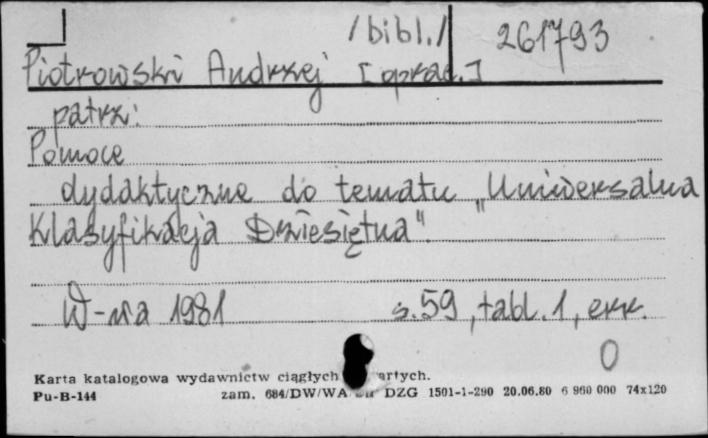 /bibl./ 261793
Piotrowski Andrzej [oprac.]
patrz:
Pomoce
dydaktyczne do tematu „Uniwersalna
Klasyfikacja Dziesiętna".
W-wa 1981 s.59, tabl.1, err.
0
Karta katalogowa wydawnictw ciągłych artych.
Pu-B-144 zam. 684/DW/WA DZG 1501-1-290 20.06.80 6 960 000 74x120